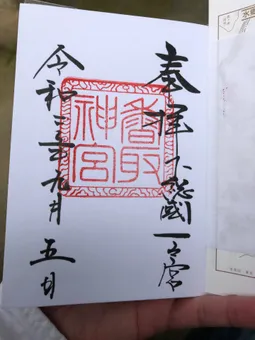 奉拝 下総國一之宮
香取
神宮
令和三年九月五日